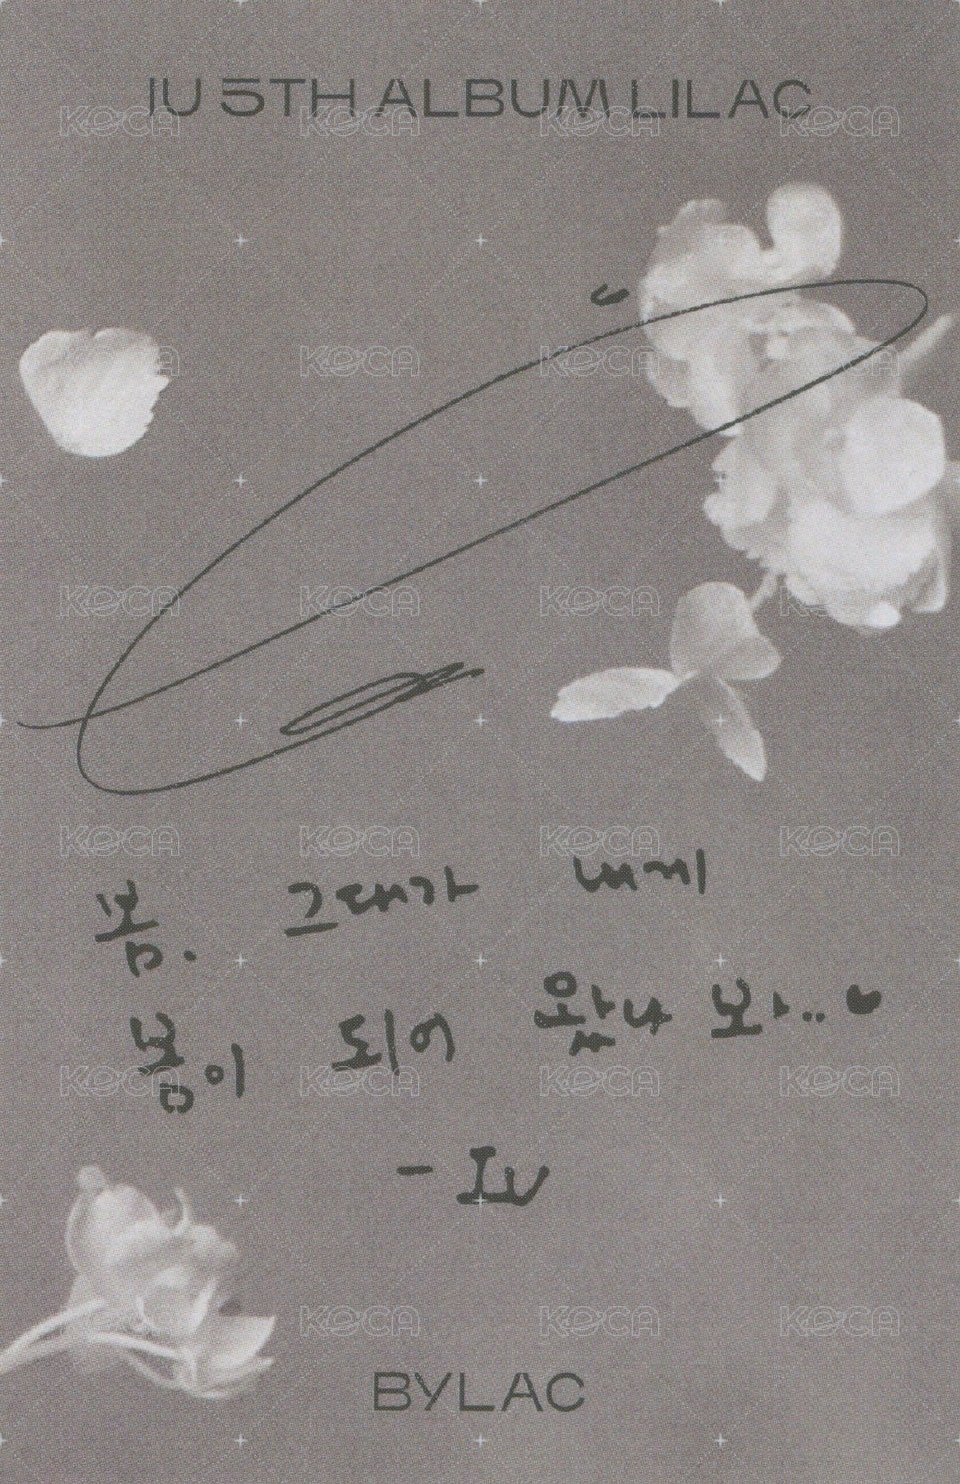 IU 5TH ALBUM LILAC
봄. 그대가 내게
봄이 되어 왔나 봐..
- IU
BYLAC
KOCA